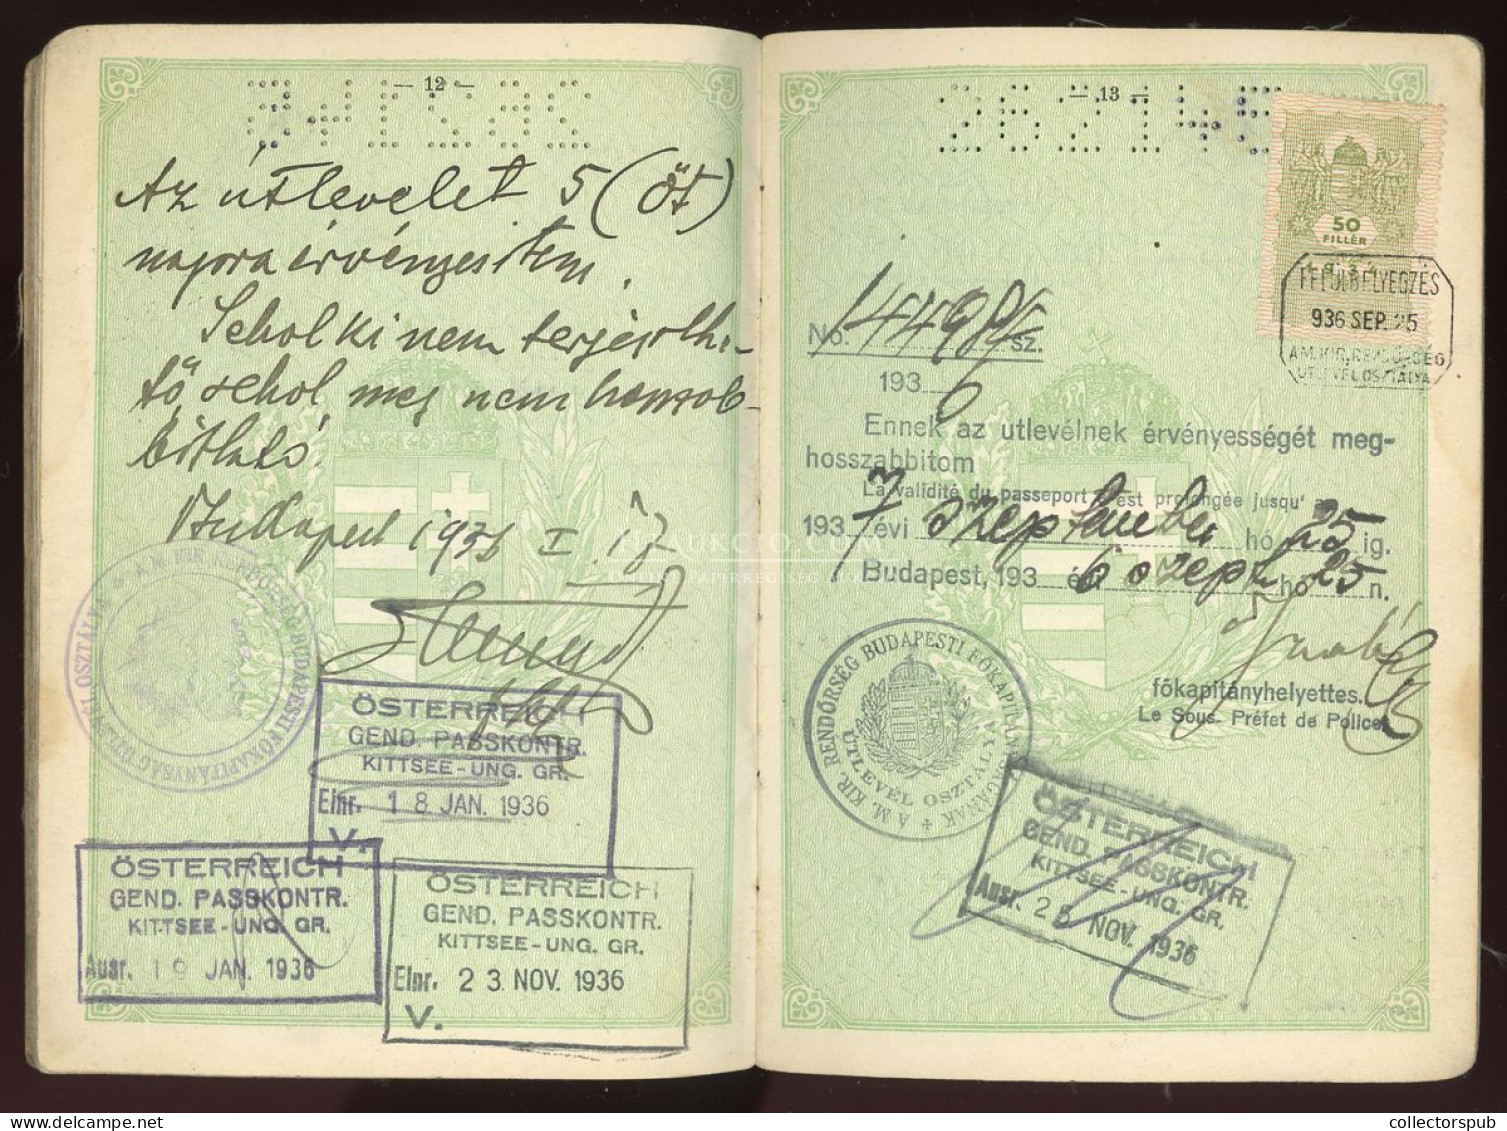 — 12 —
Az útlevelet 5 (öt)
napra érvényesitem.
Sehol ki nem terjeszthe-
tő sehol meg nem hosszab-
bitható.
Budapest 1936 I. 17
A M. KIR. RENDŐRSÉG BUDAPESTI FŐKAPITÁNYSÁG ÚTLEVÉL OSZTÁLYA
ÖSTERREICH
GEND. PASSKONTR.
KITTSEE - UNG. GR.
Einr. 18 JAN. 1936
V.
ÖSTERREICH
GEND. PASSKONTR.
KITTSEE - UNG. GR.
Ausr. 19 JAN. 1936
ÖSTERREICH
GEND. PASSKONTR.
KITTSEE - UNG. GR.
Einr. 23 NOV. 1936
V.
— 13 —
262145
50
FILLÉR
1934
FELÜLBÉLYEGZÉS
936 SEP. 25
A M. KIR. RENDŐRSÉG
ÚTLEVÉL OSZTÁLYA
No. sz.
193 6
Ennek az utlevélnek érvényességét meg-
hosszabbitom
La validité du passeport est prolongée jusqu' a
193 7 évi szeptember hó 25 ig.
Budapest, 193 6 szept hó 25 n.
főkapitányhelyettes.
Le Sous- Préfet de Police
A M. KIR. RENDŐRSÉG BUDAPESTI FŐKAPITÁNYSÁGÁNAK
ÚTLEVÉL OSZTÁLYA
ÖSTERREICH
GEND. PASSKONTR.
KITTSEE - UNG. GR.
Ausr. 25 NOV. 1936
collectorspub